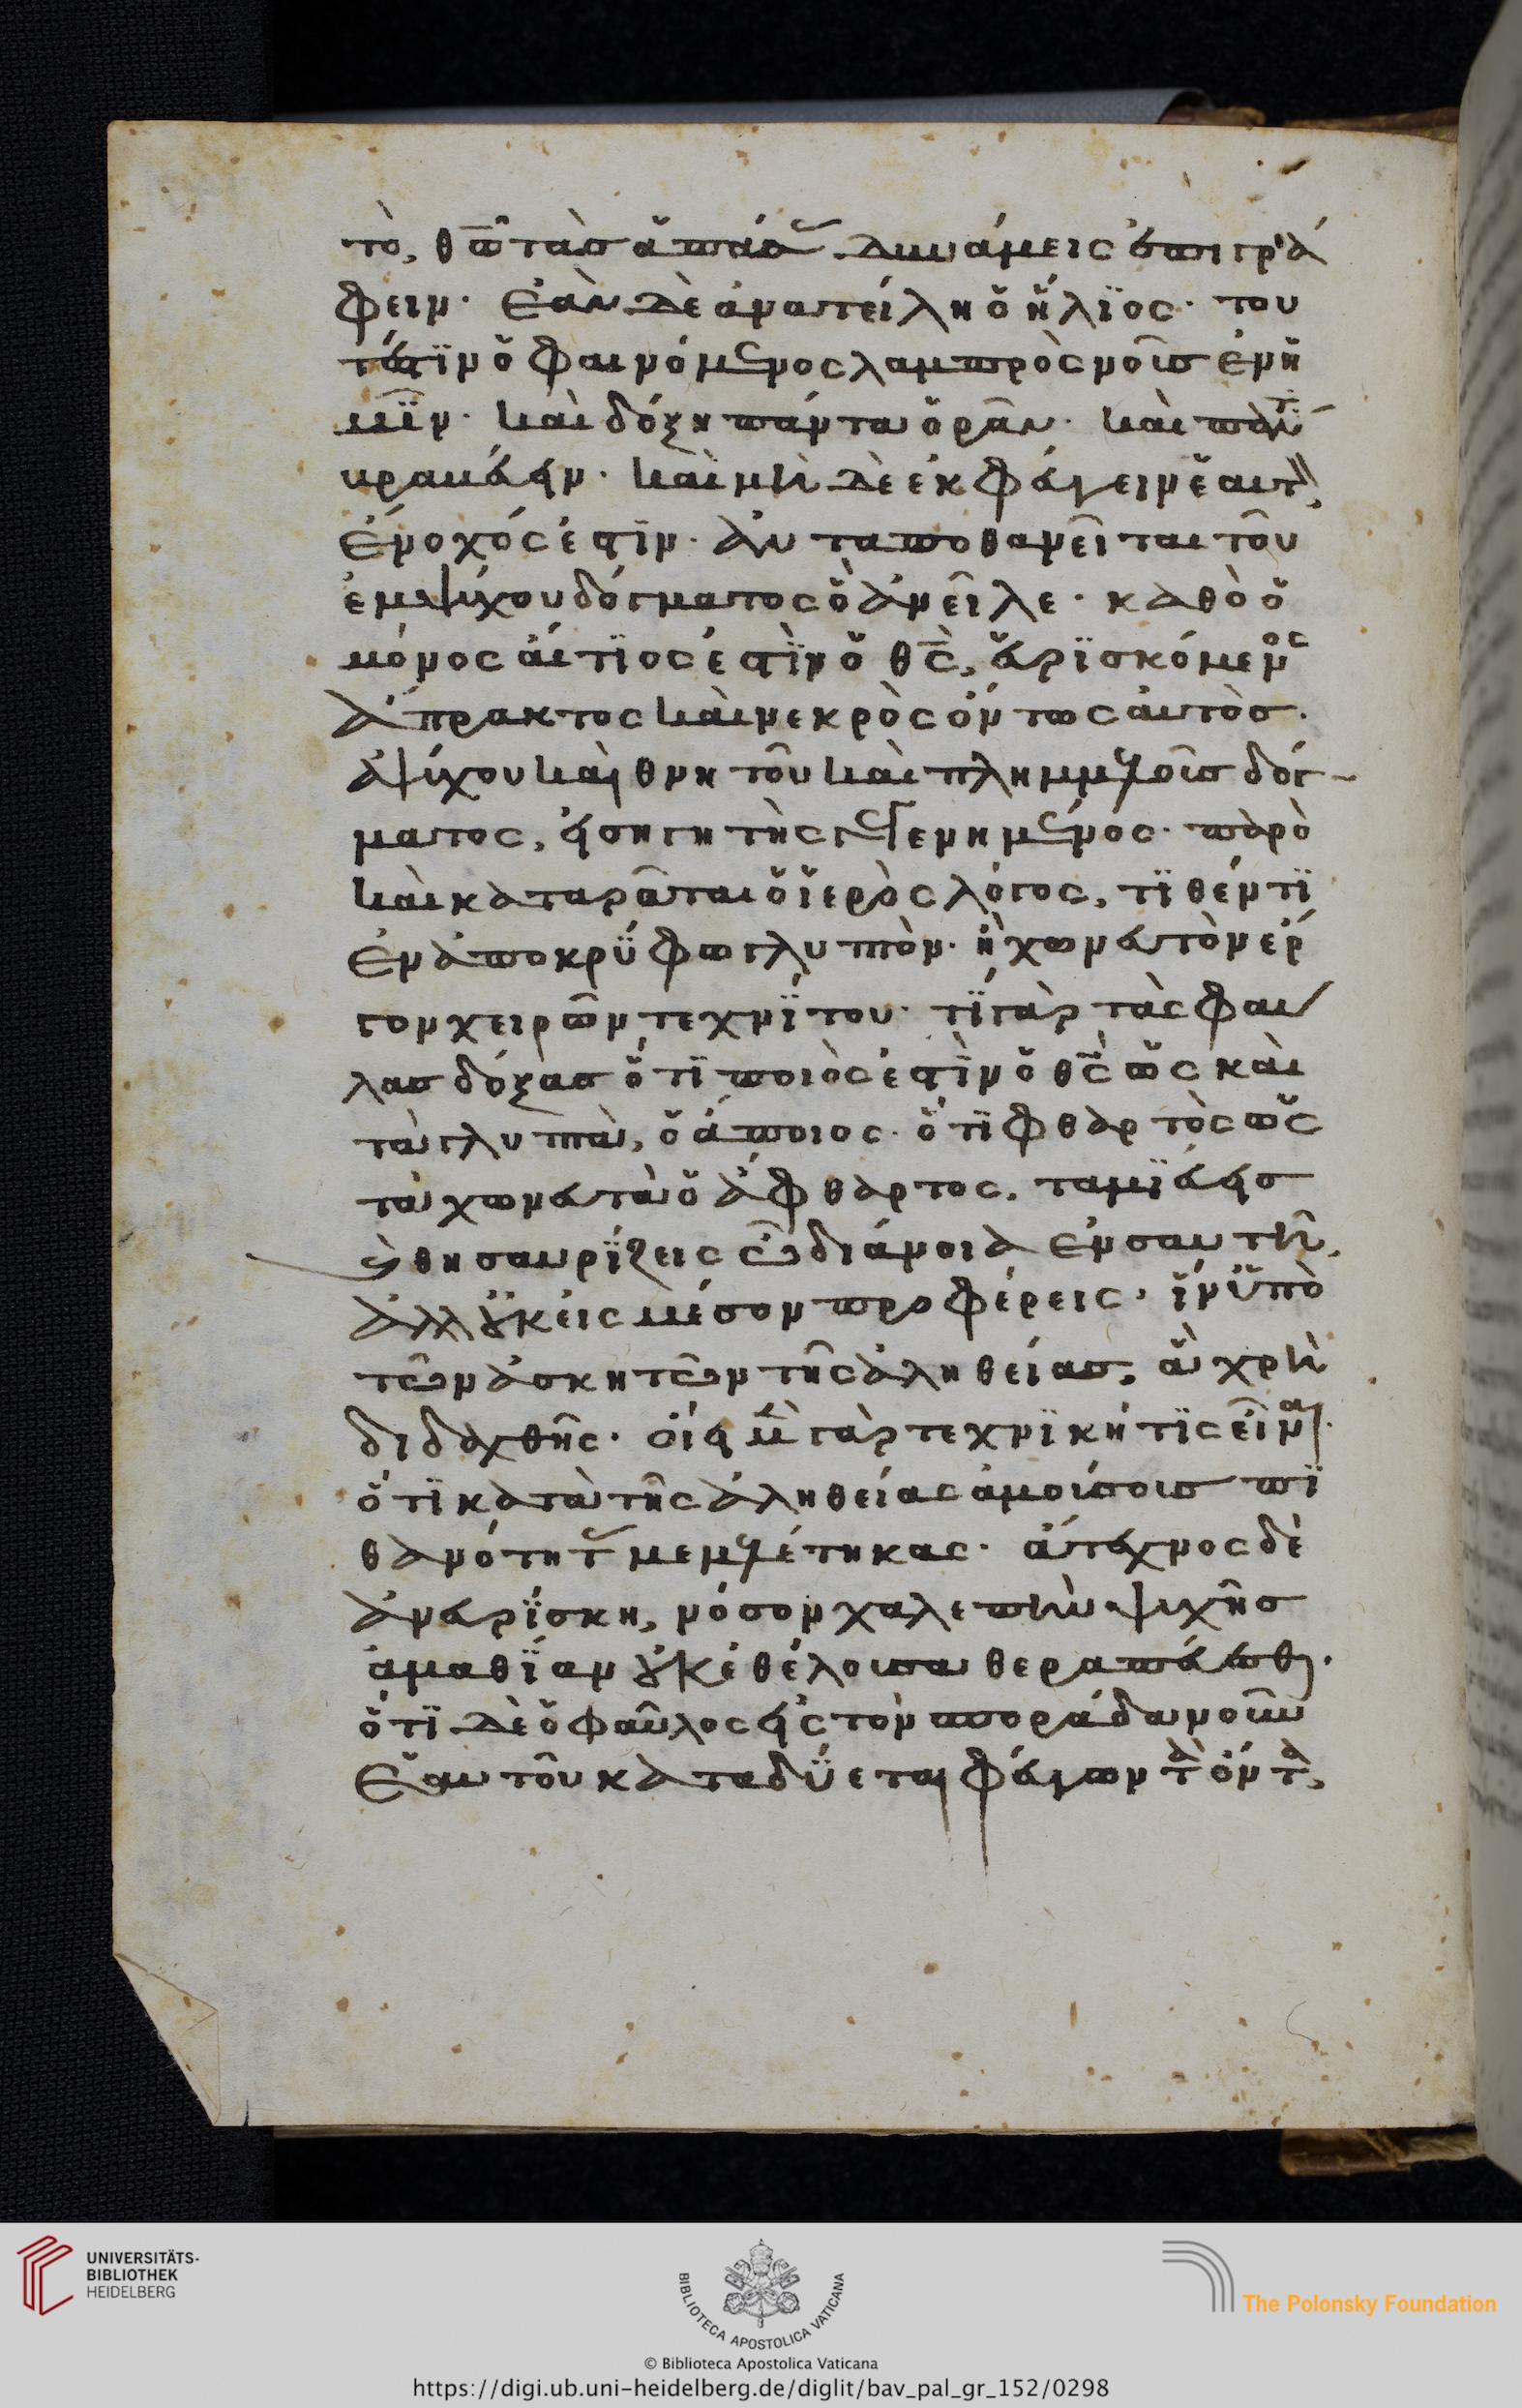 τὸ, θῶ τὰσ ἁπάσ δυνάμεις ἐπιγρά
φειν· ἐὰν δὲ ἀνατείλη ὁ ἥλϊος· του
τέστϊν ὁ φαινόμενος λαμπρὸς νοῦσ ἐν ἡ
μῖν· καὶ δόξη πάντα ὁρᾶν· καὶ πάντα
κραταιεῖν· καὶ μὴ δὲ ἐκφεύγειν ἑαυτ,
ἔνοχός ἐστϊν· ἀνταποθανεῖται τοῦ
ἐμψύχου δόγματος ὃ ἀνεῖλε· καθὸ ὁ
μόνος αἴτϊος ἐστὶν ὁ θς, εὑρϊσκόμενος
ἄπρακτος καὶ νεκρὸς ὄντως αὐτὸσ·
ἀψύχου καὶ θνητοῦ καὶ πλημμελοῦσ δόγ-
ματος, εἰσηγητὴς γεγενημένος· παρὸ
καὶ καταρᾶται ὁ ἱερὸς λόγος, τϊθέντϊ
ἐν ἀποκρύφω γλυπτὸν· ἢ χωνευτὸν ἔρ
γον χειρῶν τεχνΐτου· τΐ γὰρ τὰς φαύ
λασ δόξασ ὅτϊ ποιὸς ἐστὶν ὁ θς ὡς καὶ
τὰ γλυπτὰ, ὁ ἄποιος· ὅτϊ φθαρτὸς ὡς
τὰ χωνευτὰ ὁ ἄφθαρτος, ταμϊεύεισ
ϗ θησαυρΐζεις ὦ διάνοια ἐν σαυτῆ,
ἀλλ' οὐκ εἰς μέσον προφέρεις· ἵν' ὑπὸ
τῶν ἀσκητῶν τῆς ἀληθείασ, ἃ χρὴ
διδαχθῆς· οἴει μὲν γὰρ τεχνϊκή τϊς εἶναι·
ὅτϊ κατὰ τῆς ἀληθείας ἀμούσουσ πϊ
θανότητ μεμελέτηκας· ἄτεχνος δὲ
ἀνευρΐσκη, νόσον χαλεπὴν ψυχῆσ
ἀμαθΐαν οὐκ ἐθέλουσα θεραπεύεσθαι·
ὅτϊ δὲ ὁ φαῦλος εἰς τὸν σποράδα νοῦν
ἑαυτοῦ καταδύεται φεύγων τὸ ὄντα,
UNIVERSITÄTS-
BIBLIOTHEK
HEIDELBERG
BIBLIOTECA APOSTOLICA VATICANA
The Polonsky Foundation
© Biblioteca Apostolica Vaticana
https://digi.ub.uni-heidelberg.de/diglit/bav_pal_gr_152/0298